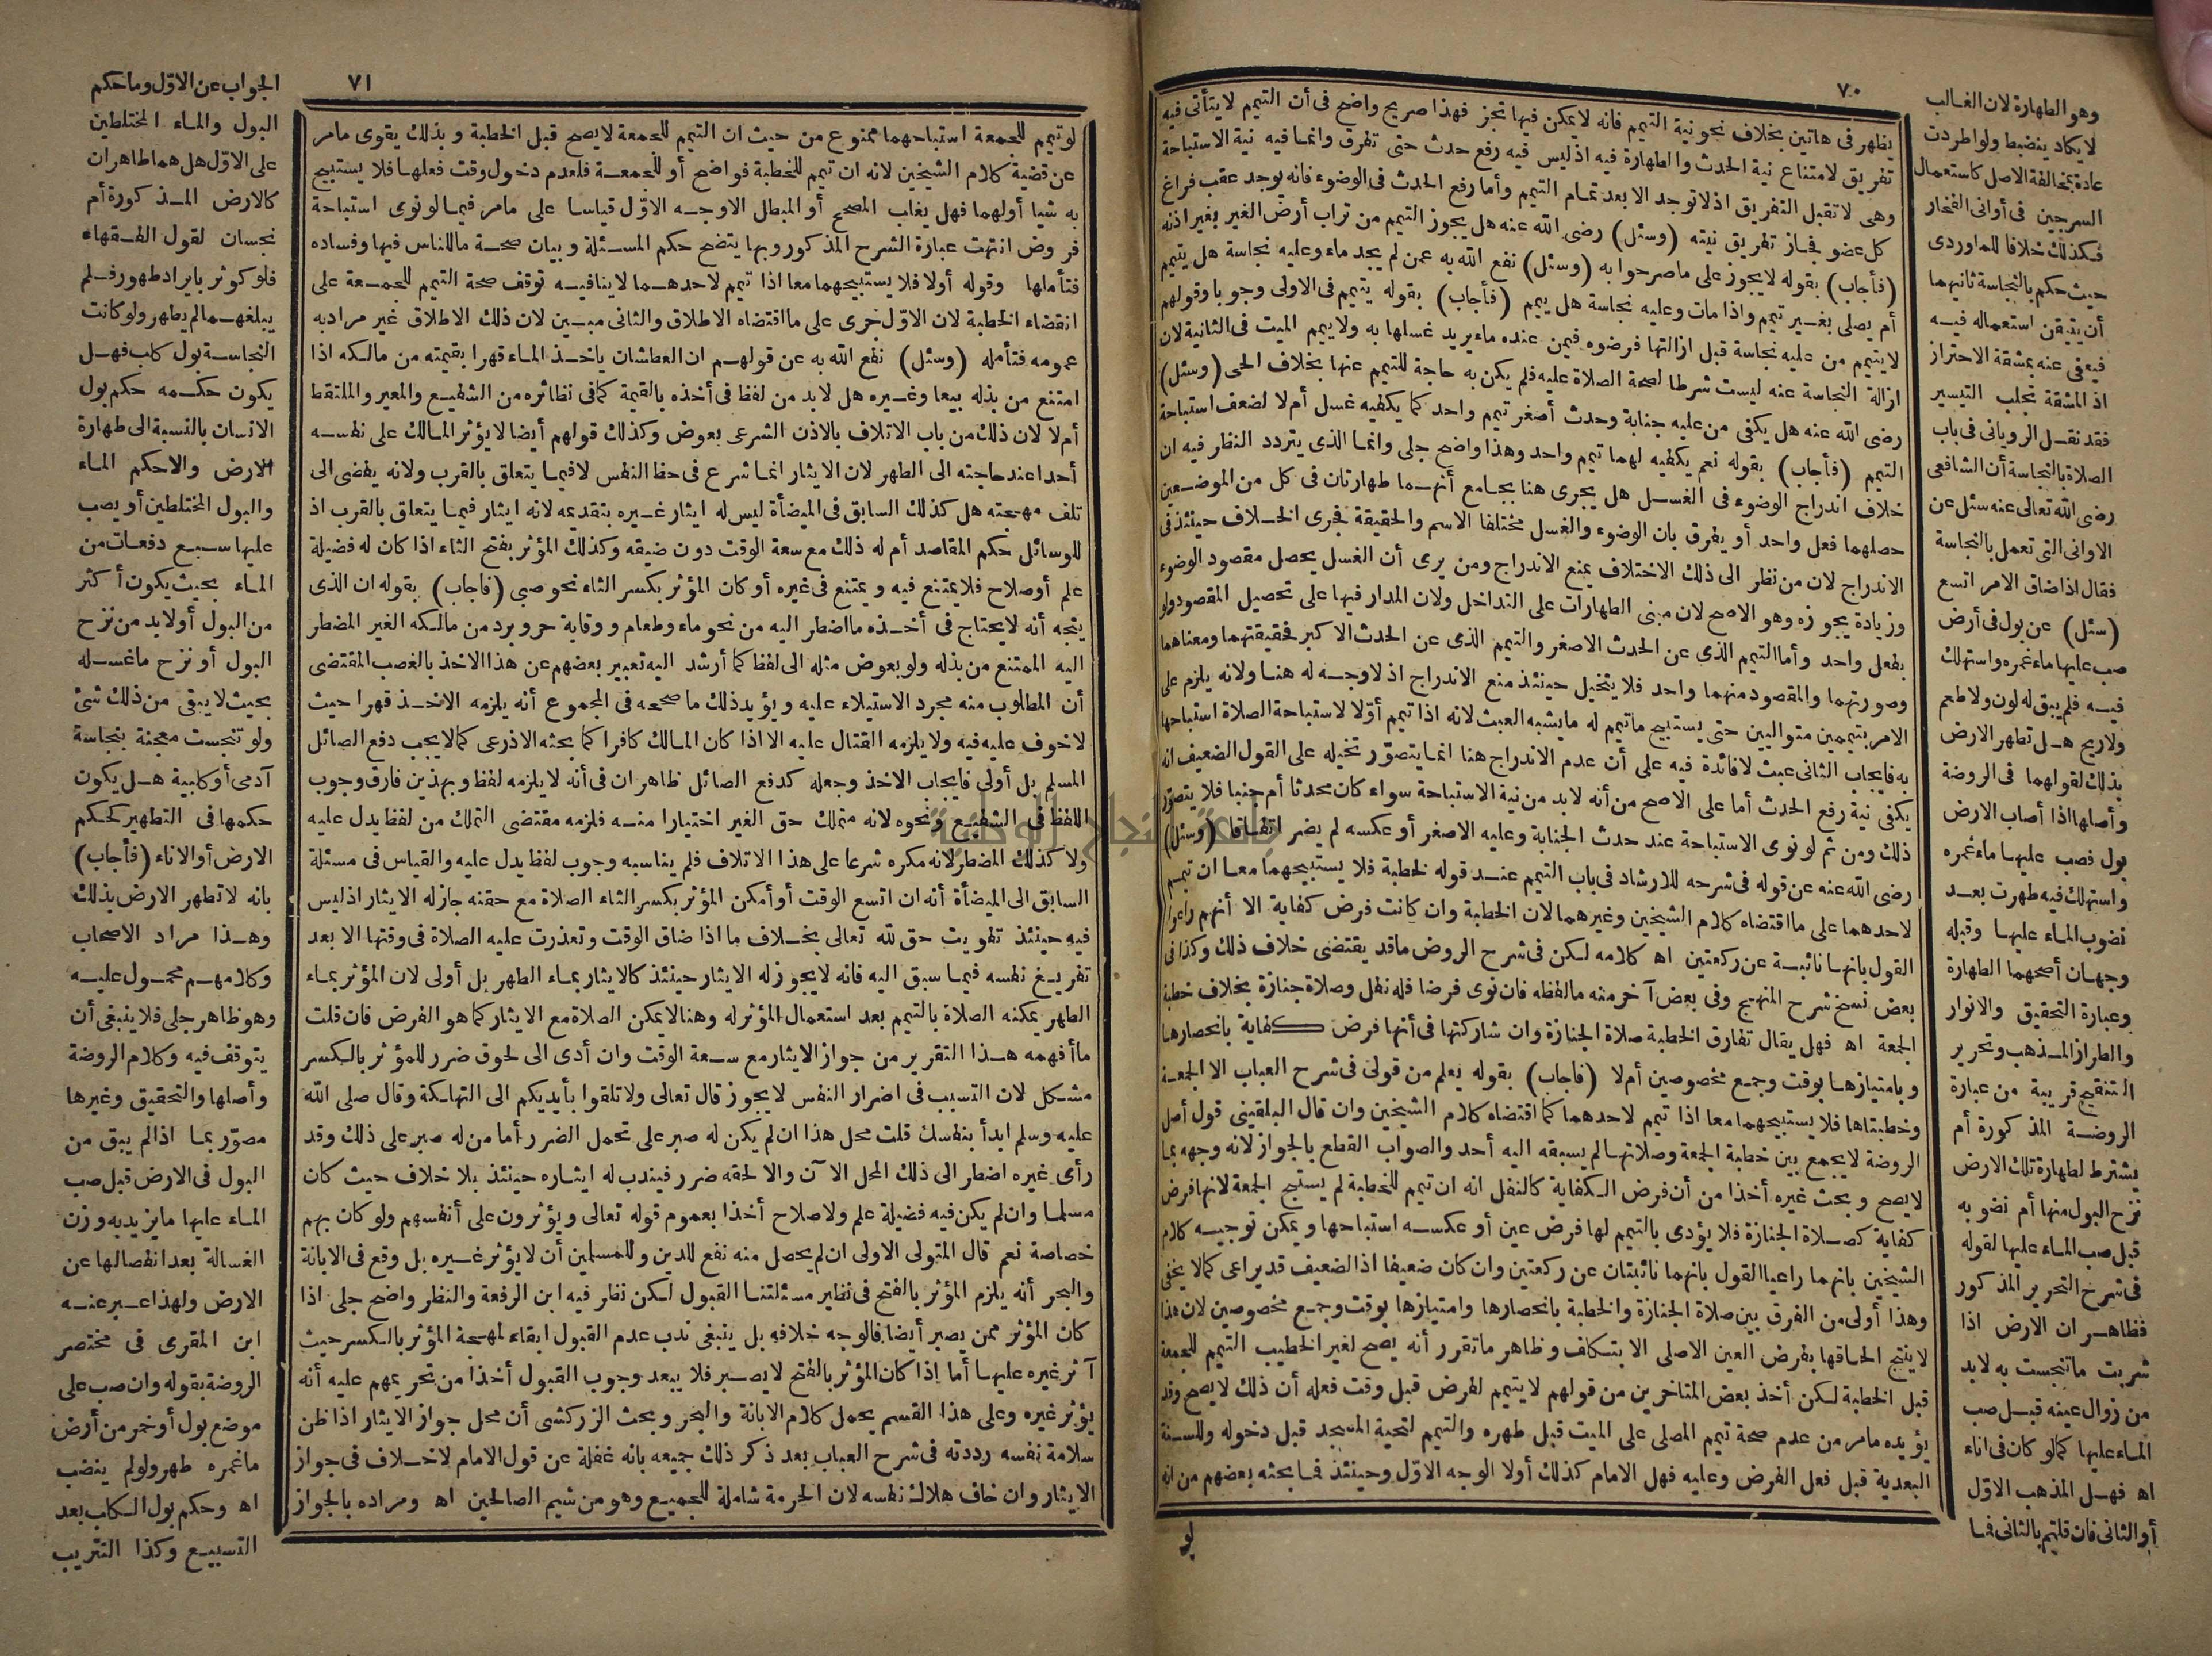 ٧٠
يظهر فى هاتين بخلاف نحو نية التيمم فانه لا يمكن فيها تجز فهذا صريح واضح فى أن التيمم لا يتأتى فيه
تفريق لامتناع نية الحدث والطهارة فيه اذ ليس فيه رفع حدث حتى تفرق وانما فيه نية الاستباحة
وهى لا تقبل التفريق اذ لا توجد الا بعد تمام التيمم وأما رفع الحدث فى الوضوء فانه يوجد عقب فراغ
كل عضو فجاز تفريق نيته (وسئل) رضى الله عنه هل يجوز التيمم من تراب أرض الغير بغير اذنه
(فأجاب) بقوله لا يجوز على ما صرحوا به (وسئل) نفع الله به عمن لم يجد ماء وعليه نجاسة هل يتيمم
أم يصلى بغير تيمم واذا مات وعليه نجاسة هل ييمم (فأجاب) بقوله يتيمم فى الاولى وجوبا وقولهم
لا يتيمم من عليه نجاسة قبل ازالتها فرضوه فيمن عنده ماء يريد غسلها به ولا ييمم الميت فى الثانية لان
ازالة النجاسة عنه ليست شرطا لصحة الصلاة عليه فلم يكن به حاجة للتيمم عنها بخلاف الحى (وسئل)
رضى الله عنه هل يكفى من عليه جنابة وحدث أصغر تيمم واحد كما يكفيه غسل أم لا لضعف استباحة
التيمم (فأجاب) بقوله نعم يكفيه لهما تيمم واحد وهذا واضح جلى وانما الذى يتردد النظر فيه ان
خلاف اندراج الوضوء فى الغسل هل يجرى هنا بجامع أنهما طهارتان فى كل من الموضعين
حصلهما فعل واحد أو يفرق بان الوضوء والغسل مختلفا الاسم والحقيقة فجرى الخلاف حينئذ فى
الاندراج لان من نظر الى ذلك الاختلاف يمنع الاندراج ومن يرى أن الغسل يحصل مقصود الوضوء
وزيادة يجوزه وهو الاصح لان مبنى الطهارات على التداخل ولان المدار فيها على تحصيل المقصود ولو
بفعل واحد وأما التيمم الذى عن الحدث الاصغر والتيمم الذى عن الحدث الاكبر فحقيقتهما ومعناهما
وصورتهما والمقصود منهما واحد فلا يتخيل حينئذ منع الاندراج اذ لا وجه له هنا ولانه يلزم على
الامر بتيممين متواليين حتى يستبيح ما تيمم له ما يشبه العبث لانه اذا تيمم أوّلا لاستباحة الصلاة استباحها
به فايجاب الثانى عبث لا فائدة فيه على أن عدم الاندراج هنا انما يتصوّر تخيله على القول الضعيف انه
يكفى نية رفع الحدث أما على الاصح من أنه لا بد من نية الاستباحة سواء كان محدثا أم جنبا فلا يتصوّر
ذلك ومن ثم لو نوى الاستباحة عند حدث الجنابة وعليه الاصغر أو عكسه لم يضر اتفاقا (وسئل)
رضى الله عنه عن قوله فى شرحه للارشاد فى باب التيمم عند قوله لخطبة فلا يستبيحهما معا ان تيمم
لاحدهما على ما اقتضاه كلام الشيخين وغيرهما لان الخطبة وان كانت فرض كفاية الا أنهم راعوا
القول بانها نائبة عن ركعتين اه كلامه لكن فى شرح الروض ما قد يقتضى خلاف ذلك وكذا فى
بعض نسخ شرح المنهج وفى بعض آخر منه مالفظه فان نوى فرضا فله نفل وصلاة جنازة بخلاف خطبة
الجمعة اه فهل يقال تفارق الخطبة صلاة الجنازة وان شاركتها فى أنها فرض كفاية بانحصارها
وبامتيازها بوقت وجمع مخصوصين أم لا (فأجاب) بقوله يعلم من قولى فى شرح العباب الا الجمعة
وخطبتاها فلا يستبيحهما معا اذا تيمم لاحدهما كما اقتضاه كلام الشيخين وان قال البلقينى قول أصل
الروضة لا يجمع بين خطبة الجمعة وصلاتها لم يسبقه اليه أحد والصواب القطع بالجواز لانه وجهه بما
لا يصح وبحث غيره أخذا من أن فرض الكفاية كالنفل انه ان تيمم للخطبة لم يستبح الجمعة لانها فرض
كفاية كصلاة الجنازة فلا يؤدى بالتيمم لها فرض عين أو عكسه استباحها ويمكن توجيه كلام
الشيخين بانهما راعيا القول بانهما نائبتان عن ركعتين وان كان ضعيفا اذ الضعيف قد يراعى كما لا يخفى
وهذا أولى من الفرق بين صلاة الجنازة والخطبة بانحصارها وامتيازها بوقت وجمع مخصوصين لان هذا
لا ينتج الحاقها بفرض العين الاصلى الا بتكلف وظاهر ما تقرر أنه يصح لغير الخطيب التيمم للجمعة
قبل الخطبة لكن أخذ بعض المتاخرين من قولهم لا يتيمم لفرض قبل وقت فعله أن ذلك لا يصح وقد
يؤيده مامر من عدم صحة تيمم المصلى على الميت قبل طهره والتيمم لتحية المسجد قبل دخوله وللسنة
البعدية قبل فعل الفرض وعليه فهل الامام كذلك أولا الوجه الاوّل وحينئذ فما بحثه بعضهم من انه
لو
وهو الطهارة لان الغالب
لا يكاد ينضبط ولو اطردت
عادة بمخالفة الاصل كاستعمال
السرجين فى أوانى الفخار
فكذلك خلافا للماوردى
حيث حكم بالنجاسة ثانيهما
أن يتيقن استعماله فيه
فيعفى عنه بمشقة الاحتراز
اذ المشقة تجلب التيسير
فقد نقل الرويانى فى باب
الصلاة بالنجاسة أن الشافعى
رضى الله تعالى عنه سئل عن
الاوانى التى تعمل بالنجاسة
فقال اذا ضاق الامر اتسع
(سئل) عن بول فى أرض
صب عليها ماء غمره واستهلك
فيه فلم يبق له لون ولا طعم
ولا ريح هل تطهر الارض
بذلك لقولهما فى الروضة
وأصلها اذا أصاب الارض
بول فصب عليها ماء غمره
واستهلك فيه طهرت بعد
نضوب الماء عليها وقبله
وجهان أصحهما الطهارة
وعبارة التحقيق والانوار
والطراز المذهب وتحرير
التنقيح قريبة من عبارة
الروضة المذكورة أم
يشترط لطهارة تلك الارض
نزح البول منها أم نضوبه
قبل صب الماء عليها لقوله
فى شرح التحرير المذكور
فظاهر ان الارض اذا
شربت ما تنجست به لا بد
من زوال عينه قبل صب
الماء عليها كما لو كان فى اناء
اه فهل المذهب الاوّل
أو الثانى فان قلتم بالثانى فما
٧١
لو تيمم للجمعة استباحهما ممنوع من حيث ان التيمم للجمعة لا يصح قبل الخطبة وبذلك يقوى مامر
عن قضية كلام الشيخين لانه ان تيمم للخطبة فواضح أو للجمعة فلعدم دخول وقت فعلها فلا يستبيح
به شيا أولهما فهل يغلب المصحح أو المبطل الاوجه الاوّل قياسا على مامر فيما لو نوى استباحة
فروض انتهت عبارة الشرح المذكور وبها يتضح حكم المسئلة وبيان صحة ما للناس فيها وفساده
فتأملها وقوله أولا فلا يستبيحهما معا اذا تيمم لاحدهما لا ينافيه توقف صحة التيمم للجمعة على
انقضاء الخطبة لان الاوّل جرى على ما اقتضاه الاطلاق والثانى مبين لان ذلك الاطلاق غير مراد به
عمومه فتأمله (وسئل) نفع الله به عن قولهم ان العطشان ياخذ الماء قهرا بقيمته من مالكه اذا
امتنع من بذله بيعا وغيره هل لا بد من لفظ فى أخذه بالقيمة كما فى نظائره من الشفيع والمعير والملتقط
أم لا لان ذلك من باب الاتلاف بالاذن الشرعى بعوض وكذلك قولهم أيضا لا يؤثر المالك على نفسه
أحدا عند حاجته الى الطهر لان الايثار انما شرع فى حظ النفس لا فيما يتعلق بالقرب ولانه يفضى الى
تلف مهجته هل كذلك السابق فى الميضأة ليس له ايثار غيره بتقدمه لانه ايثار فيما يتعلق بالقرب اذ
للوسائل حكم المقاصد أم له ذلك مع سعة الوقت دون ضيقه وكذلك المؤثر بفتح الثاء اذا كان له فضيلة
علم أو صلاح فلا يمتنع فيه ويمتنع فى غيره أو كان المؤثر بكسر الثاء نحو صبى (فأجاب) بقوله ان الذى
يتجه أنه لا يحتاج فى أخذه ما اضطر اليه من نحو ماء وطعام ووقاية حر وبرد من مالكه الغير المضطر
اليه الممتنع من بذله ولو بعوض مثله الى لفظ كما أرشد اليه تعبير بعضهم عن هذا الاخذ بالغصب المقتضى
أن المطلوب منه مجرد الاستيلاء عليه ويؤيد ذلك ما صححه فى المجموع أنه يلزمه الاخذ قهرا حيث
لا خوف عليه فيه ولا يلزمه القتال عليه الا اذا كان المالك كافرا كما بحثه الاذرعى كما لا يجب دفع الصائل
المسلم بل أولى فايجاب الاخذ وجعله كدفع الصائل ظاهران فى أنه لا يلزمه لفظ وبهذين فارق وجوب
اللفظ فى الشفيع ونحوه لانه متملك حق الغير اختيارا منه فلزمه مقتضى التملك من لفظ يدل عليه
ولا كذلك المضطر لانه مكره شرعا على هذا الاتلاف فلم يناسبه وجوب لفظ يدل عليه والقياس فى مسئلة
السابق الى الميضأة أنه ان اتسع الوقت أو أمكن المؤثر بكسر الثاء الصلاة مع حقنه جاز له الايثار اذ ليس
فيه حينئذ تفويت حق لله تعالى بخلاف ما اذا ضاق الوقت وتعذرت عليه الصلاة فى وقتها الا بعد
تفريغ نفسه فيما سبق اليه فانه لا يجوز له الايثار حينئذ كالايثار بماء الطهر بل أولى لان المؤثر بماء
الطهر يمكنه الصلاة بالتيمم بعد استعمال المؤثر له وهنا لا يمكن الصلاة مع الايثار كما هو الفرض فان قلت
ما أفهمه هذا التقرير من جواز الايثار مع سعة الوقت وان أدى الى لحوق ضرر للمؤثر بالكسر
مشكل لان التسبب فى اضرار النفس لا يجوز قال تعالى ولا تلقوا بأيديكم الى التهلكة وقال صلى الله
عليه وسلم ابدأ بنفسك قلت محل هذا ان لم يكن له صبر على تحمل الضرر أما من له صبر على ذلك وقد
رأى غيره اضطر الى ذلك المحل الآن والا لحقه ضرر فيندب له ايثاره حينئذ بلا خلاف حيث كان
مسلما وان لم يكن فيه فضيلة علم ولا صلاح أخذا بعموم قوله تعالى ويؤثرون على أنفسهم ولو كان بهم
خصاصة نعم قال المتولى الاولى ان لم يحصل منه نفع للدين وللمسلمين أن لا يؤثر غيره بل وقع فى الابانة
والبحر أنه يلزم المؤثر بالفتح فى نظير مسئلتنا القبول لكن نظر فيه ابن الرفعة والنظر واضح جلى اذا
كان المؤثر ممن يصبر أيضا فالوجه خلافه بل ينبغى ندب عدم القبول ابقاء لمهجة المؤثر بالكسر حيث
آثر غيره عليها أما اذا كان المؤثر بالفتح لا يصبر فلا يبعد وجوب القبول أخذا من تحريمهم عليه أنه
يؤثر غيره وعلى هذا القسم يحمل كلام الابانة والبحر وبحث الزركشى أن محل جواز الايثار اذا ظن
سلامة نفسه رددته فى شرح العباب بعد ذكر ذلك جميعه بانه غفلة عن قول الامام لا خلاف فى جواز
الايثار وان خاف هلاك نفسه لان الحرمة شاملة للجميع وهو من شيم الصالحين اه ومراده بالجواز
الجواب عن الاوّل وما حكم
البول والماء المختلطين
على الاوّل هل هما طاهران
كالارض المذكورة أم
نجسان لقول الفقهاء
فلو كوثر بايراد طهور فلم
يبلغهما لم يطهر ولو كانت
النجاسة بول كلب فهل
يكون حكمه حكم بول
الانسان بالنسبة الى طهارة
الارض والا حكم الماء
والبول المختلطين أو يصب
عليها سبع دفعات من
الماء بحيث يكون أكثر
من البول أو لا بد من نزح
البول أو نزح ما غسله
بحيث لا يبقى من ذلك شئ
ولو تنجست معجنة بنجاسة
آدمى أو كلبية هل يكون
حكمها فى التطهير كحكم
الارض أو الاناء (فأجاب)
بانه لا تطهر الارض بذلك
وهذا مراد الاصحاب
وكلامهم محمول عليه
وهو ظاهر جلى فلا ينبغى أن
يتوقف فيه وكلام الروضة
وأصلها والتحقيق وغيرها
مصوّر بما اذا لم يبق من
البول فى الارض قبل صب
الماء عليها ما يزيد به وزن
الغسالة بعد انفصالها عن
الارض ولهذا عبر عنه
ابن المقرى فى مختصر
الروضة بقوله وان صب على
موضع بول أو خمر من أرض
ما غمره طهر ولو لم ينضب
اه وحكم بول الكلب بعد
التسبيع وكذا التتريب
جامعة النجاح الوطنية